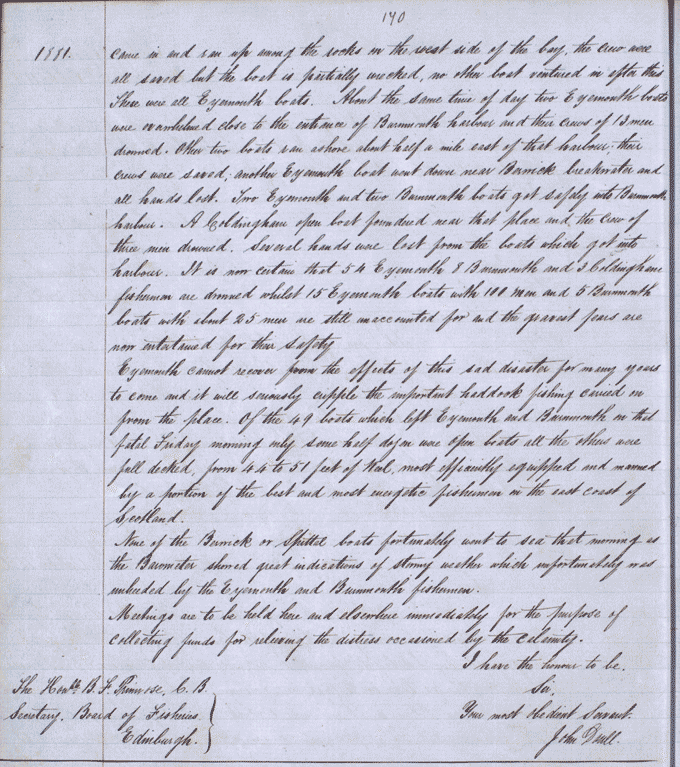 190
1881.
came in and ran up among the rocks on the west side of the bay, the crew were
all saved but the boat is partially wrecked, no other boat ventured in after this
These were all Eyemouth boats. About the same time of day two Eyemouth boats
were overwhelmed close to the entrance of Burnmouth harbour and their crews of 13 men
drowned. Other two boats ran ashore about half a mile east of that harbour, their
crews were saved, another Eyemouth boat went down near Berwick breakwater and
all hands lost. Two Eyemouth and two Burnmouth boats got safely into Burnmouth
harbour. A Coldingham open boat foundered near that place and the crew of
three men drowned. Several hands were lost from the boats which got into
harbour. It is now certain that 54 Eyemouth 8 Burnmouth and 3 Coldingham
fishermen are drowned whilst 15 Eyemouth boats with 100 men and 5 Burnmouth
boats with about 25 men are still unaccounted for and the gravest fears are
now entertained for their safety
Eyemouth cannot recover from the effects of this sad disaster for many years
to come and it will seriously cripple the important haddock fishing carried on
from the place. Of the 49 boats which left Eyemouth and Burnmouth on that
fatal Friday morning only some half dozen were open boats all the others were
full decked, from 44 to 51 feet of keel, most efficiently equipped and manned
by a portion of the best and most energetic fishermen on the east coast of
Scotland.
None of the Berwick or Spittal boats fortunately went to sea that morning as
the Barometer showed great indications of stormy weather which unfortunately was
unheeded by the Eyemouth and Burnmouth fishermen.
Meetings are to be held here and elsewhere immediately for the purpose of
collecting funds for relieving the distress occasioned by the calamity.
I have the honour to be,
Sir,
Your most obedient Servant.
John Doull.
The Honble. B. F. Primrose, C.B.
Secretary. Board of Fisheries
Edinburgh.